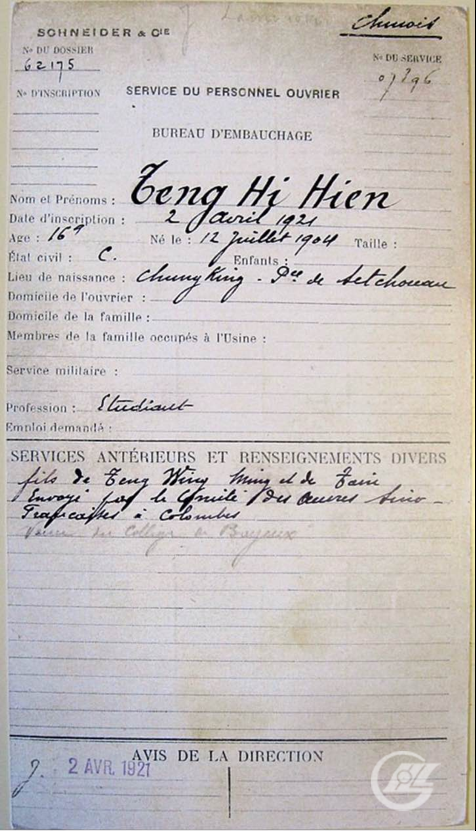 Chinois
SCHNEIDER & CIE
No DU DOSSIER
62175
No DU SERVICE
07396
No D'INSCRIPTION
SERVICE DU PERSONNEL OUVRIER
BUREAU D'EMBAUCHAGE
Nom et Prénoms : Teng Hi Hien
Date d'inscription : 2 avril 1921
Age : 16a Né le : 12 Juillet 1904 Taille :
État civil : C. Enfants :
Lieu de naissance : Chungking - Pce de Setchouan
Domicile de l'ouvrier :
Domicile de la famille :
Membres de la famille occupés à l'Usine :
Service militaire :
Profession : Etudiant
Emploi demandé :
SERVICES ANTÉRIEURS ET RENSEIGNEMENTS DIVERS
fils de Teng Wing Ming et de Tain
Envoyé par le Comité des Oeuvres Sino-
Françaises à Colombes
Venu du Collège de Bayeux
AVIS DE LA DIRECTION
2 AVR. 1921